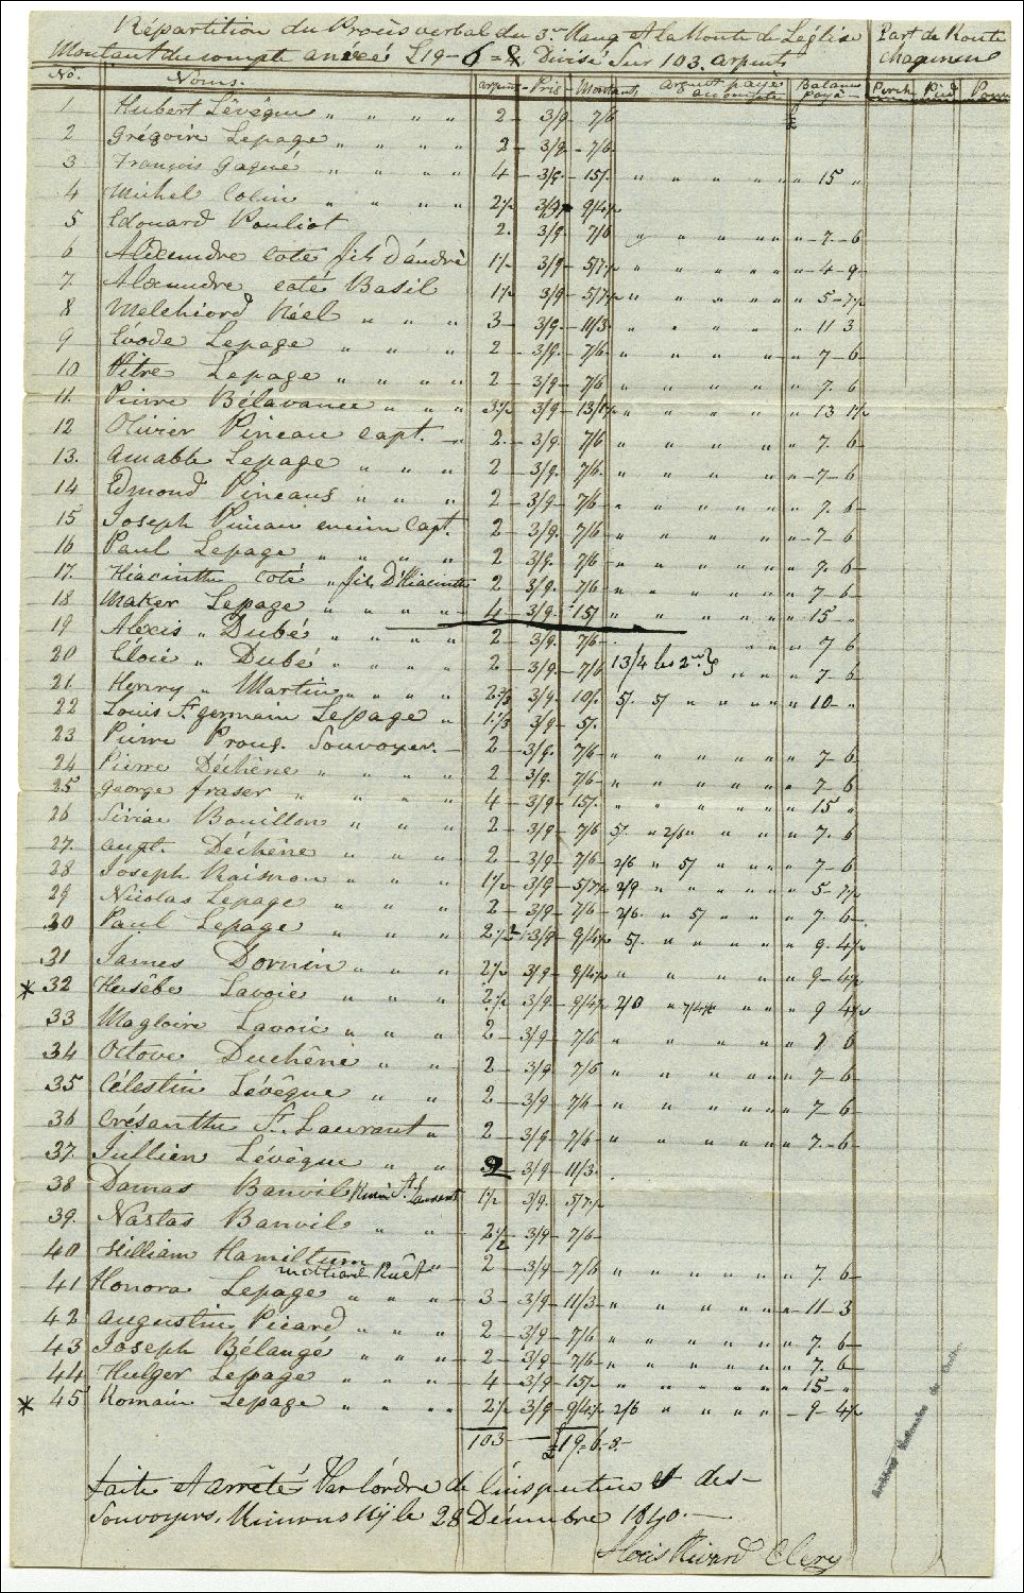 Répartition du Procès verbal du 3me Rang et la Monté de Léglise
Montant du compte année £19-6=8 Divisé Sur 103. arpents
Part de Route chaqu'un
No. Noms. arpent Pris Montant Argent payés au compte Balance payé Perch Pied Pouce
1 Hubert Lévêque " " " " 2 3/9 7/6
2 Grégoire Lepage " " " " 2 3/9 7/6
3 François Gagné " " " " 4 3/9 15/. " " " " " 15 "
4 Michel Colin " " " " 2½ 3/9 9/4½
5 Edouard Pouliot 2. 3/9 7/6 " " " " " 7-6
6 Alexendre coté fils D'andré 1½ 3/9 5/7½ " " " " " 4-9
7 Alexendre coté Basil 1½ 3/9 5/7½ " " " " " 5-7½
8 Melchiord Réel " " " 3 3/9 11/3 " " " " " 11 3
9 Evode Lepage " " " " 2 3/9 7/6 " " " " " 7-6
10 Pitre Lepage " " " " 2 3/9 7/6 " " " " " 7. 6
11. Pierre Bélavance " " " 3½ 3/9 13/1½ " " " " " 13 1½
12 Olivier Pineau capt. 2 3/9 7/6 " " " " " 7. 6
13. Amable Lepage " " " 2 3/9 7/6 " " " " " 7-6
14 Edmond Pineaus " " " 2 3/9 7/6 " " " " " 7. 6
15 Joseph Pineau encien Capt. 2 3/9 7/6 " " " " " 7-6
16 Paul Lepage " " " " 2 3/9 7/6 " " " " " 7. 6
17. Hiacinthe Coté " fils D'Hiacinthe 2 3/9 7/6 " " " " " 7-6
18 Maker Lepage " " " " 4 3/9 15/ " " " " " 15 "
19 Alexis " Dubé " " " " 2 3/9 7/6 " " " 7 6
20 Eloie " Dubé " " " " 2 3/9 7/6 13/4 les 2 " " " " 7-6
21. Henry " Martin " " " 2⅔ 3/9 10/. 5/. 5/ " " " " 10 "
22 Louis St germain Lepage " 1⅓ 3/9 5/.
23 Pierre Proux. Souvoyer. 2 3/9 7/6 " " " " " 7-6
24 Pierre Déchêne " " " " 2 3/9 7/6 " " " " " 7-6
25 george fraser " " " " 4 3/9 15/. " " " " " 15 "
26 Siriac Bouillon " " " 2 3/9 7/6 5/. " 2/6 " " " " 7. 6
27. augt. Déchêne " " " 2 3/9 7/6 2/6 " 5/ " " " 7-6
28 Joseph Raimon " " " 1½ 3/9 5/7½ 2/9 " " " " " 5-7½
29 Nicolas Lepage " " " 2 3/9 7/6 2/6. " 5/ " " " 7. 6
30 Paul Lepage " " " 2½ 3/9 9/4½ 5/. " " " " " 9. 4½
31 James Dornin " " " 2½ 3/9 9/4½ " " " " " 9-4½
* 32 Heusèbe Lavoie " " " 2½ 3/9 9/4½ 2/0 " 7/4½ " " " 9 4½
33 Magloire Lavoie " " " 2 3/9 7/6 " " " " " 7 6
34 Octove Duchêne " " " 2 3/9 7/6 " " " " " 7-6
35 Célestin Lévêque " " 2 3/9 7/6 " " " " " 7 6
36 Crésanthe St. Laurant " 2 3/9 7/6 " " " " " 7.-6
37. Jullien Lévêque " " 3 3/9 11/3.
38 Damas Banvil Réné St. Laurent 1½ 3/9. 5/7½
39. Nastas Banvil " " 2 3/9 7/6
40 William Hamiltum " 2 3/9 7/6 " " " " " 7. 6
michael Ruêt
41 Honora Lepage " " " 3 3/9 11/3 " " " " " 11-3
42 augustin Picard " " " 2 3/9 7/6 " " " " " 7. 6
43 Joseph Bélangé " " " 2 3/9 7/6 " " " " " 7. 6
44 Hulger Lepage " " " " 4 3/9 15/. " " " " " 15- "
* 45 Romain Lepage " " " " 2½ 3/9 9/4½ 2/6 " " " " 9-4½
103 — £19.-6.-3.-
faite et arrêtés Par l'ordre de l'inspecteur et des
Souvoyers. Rimouskÿ le 28 Décembre 1840.
Louis Rivard Clery